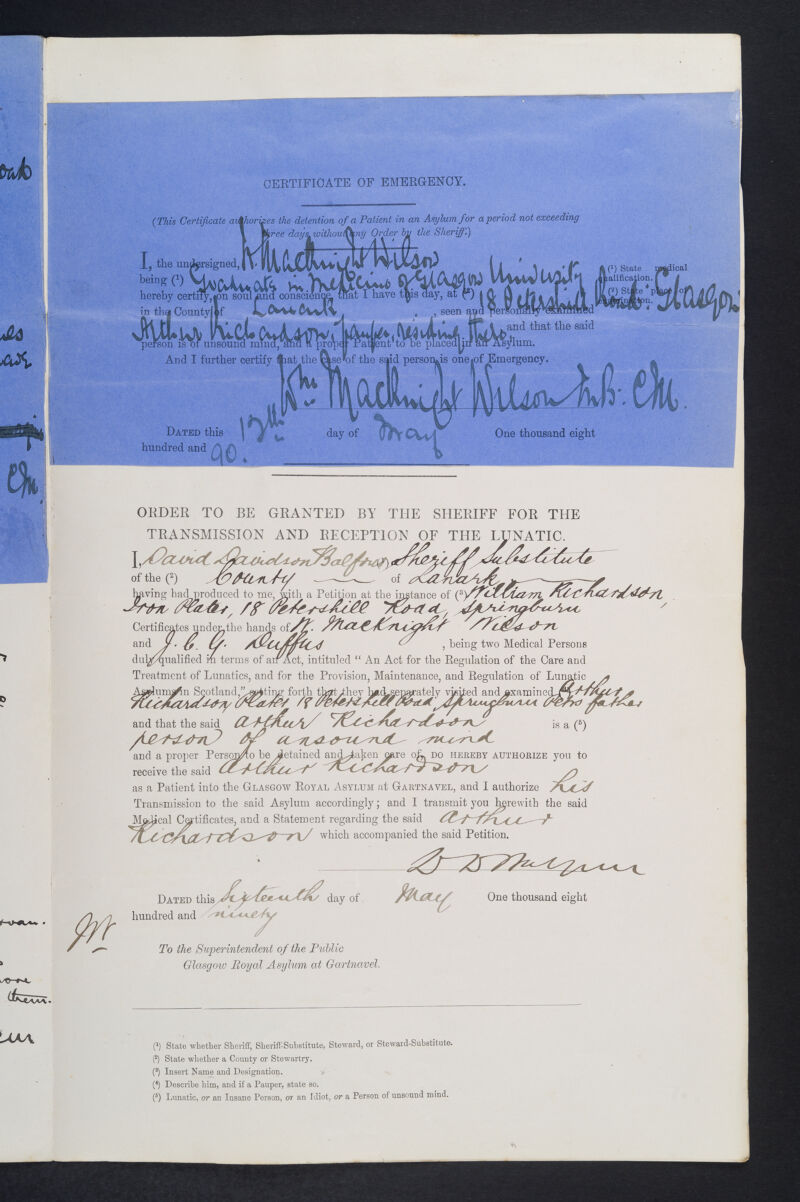 oak
CERTIFICATE OF EMERGENCY.
(This Certificate authorizes the detention of a Patient in an Asylum for a period not exceeding
three days, without any Order by the Sheriff.)
I, the undersigned, W. MacKnight Wilson
being (¹) Graduate in Medicine of Glasgow University
(¹) State medical qualification.
hereby certify, on soul and conscience, that I have this day, at (²) 18 Petershill Road. Glasgow
(²) State place of examination.
in the County of Lanark, seen and personally examined
Arthur Richardson, pauper, residing there, and that the said
person is of unsound mind, and a proper Patient to be placed in an Asylum.
And I further certify that the case of the said person is one of Emergency.
Wm MacKnight Wilson M.B: CM.
DATED this 13th day of May One thousand eight
hundred and 90.
CM
ORDER TO BE GRANTED BY THE SHERIFF FOR THE
TRANSMISSION AND RECEPTION OF THE LUNATIC.
I, David Davidson Balfour, Sheriff Substitute
of the (²) County of Lanark
having had produced to me, with a Petition at the instance of (³) William Richardson,
Iron Plater, 18 Petershill Road, Springburn
Certificates under the hands of W. MacKnight Wilson
and J. C. G. Duffus, being two Medical Persons
duly qualified in terms of an Act, intituled “ An Act for the Regulation of the Care and
Treatment of Lunatics, and for the Provision, Maintenance, and Regulation of Lunatic
Asylums in Scotland,” setting forth that they had separately visited and examined Arthur
Richardson Plater, 18 Petershill Road, Springburn father
and that the said Arthur Richardson is a (⁵)
person of unsound mind
and a proper Person to be detained and taken care of, DO HEREBY AUTHORIZE you to
receive the said Arthur Richardson
as a Patient into the GLASGOW ROYAL ASYLUM at GARTNAVEL, and I authorize his
Transmission to the said Asylum accordingly; and I transmit you herewith the said
Medical Certificates, and a Statement regarding the said Arthur
Richardson which accompanied the said Petition.
DATED this Sixteenth day of May One thousand eight
hundred and ninety
To the Superintendent of the Public
Glasgow Royal Asylum at Gartnavel.
them.
(¹) State whether Sheriff, Sheriff-Substitute, Steward, or Steward-Substitute.
(²) State whether a County or Stewartry.
(³) Insert Name and Designation.
(⁴) Describe him, and if a Pauper, state so.
(⁵) Lunatic, or an Insane Person, or an Idiot, or a Person of unsound mind.